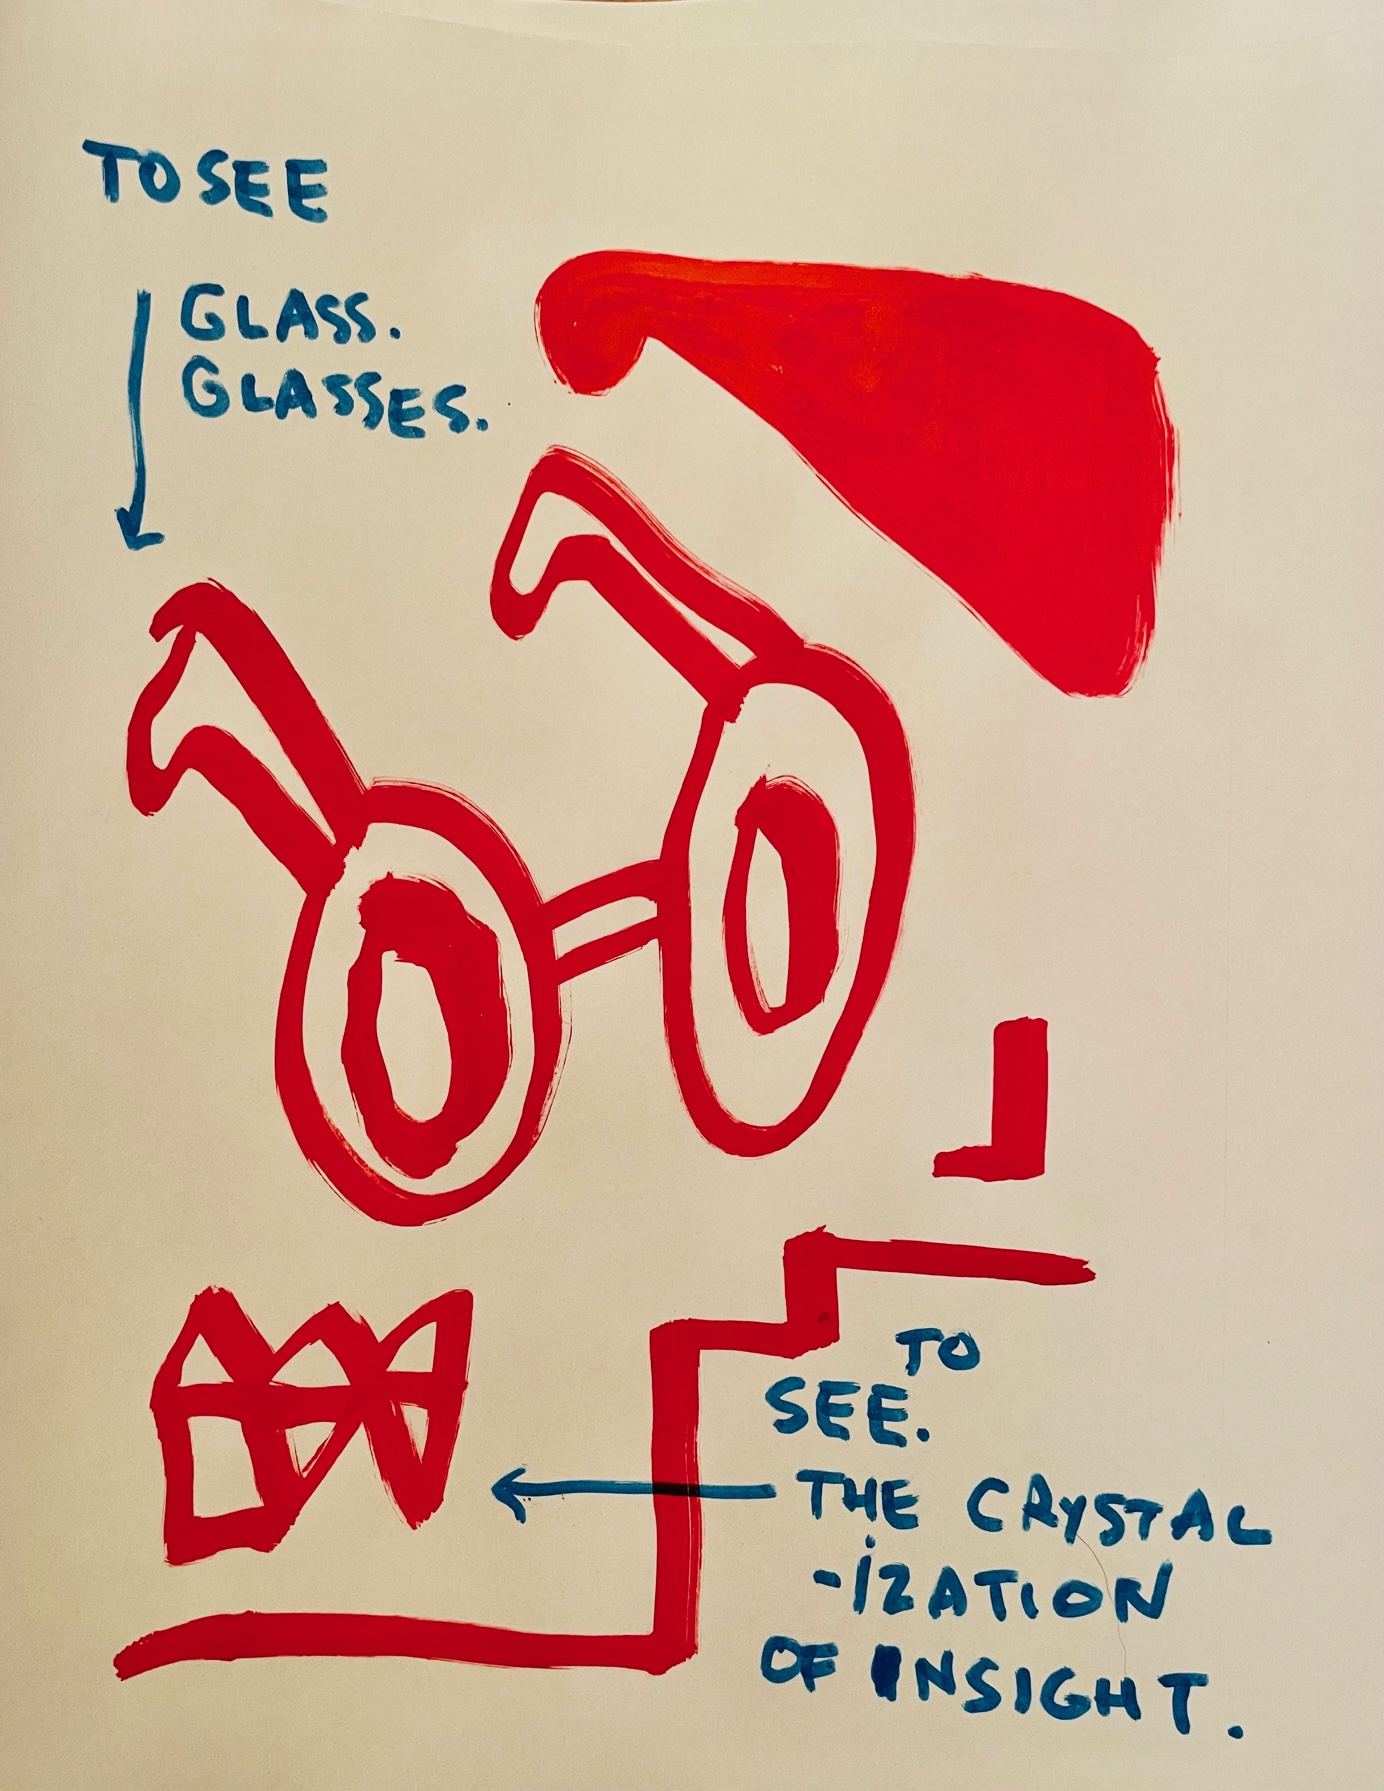 TO SEE
GLASS.
GLASSES.
TO
SEE.
THE CRYSTAL
-IZATION
OF INSIGHT.